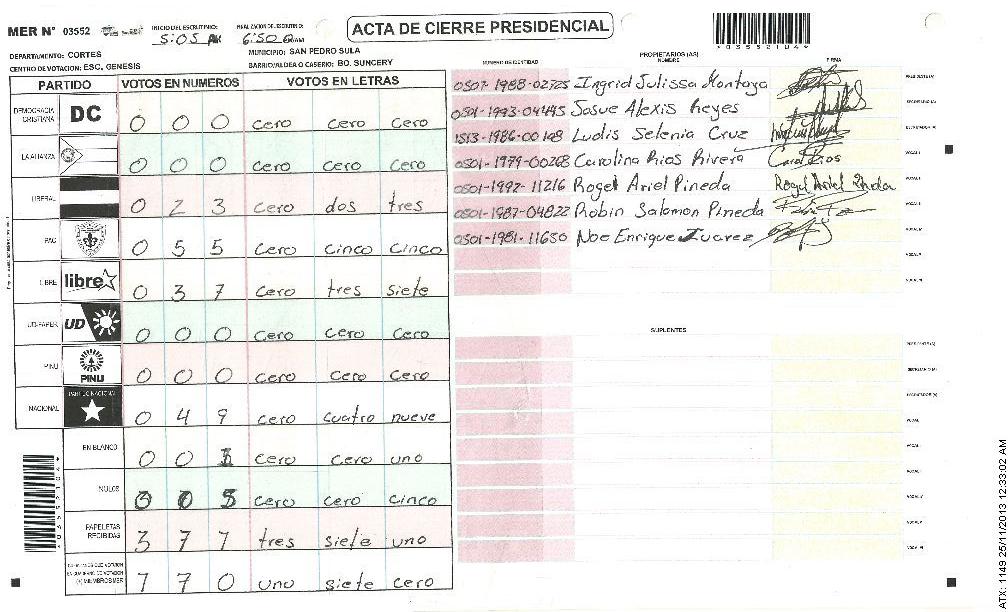 MER N° 03552
INICIO DEL ESCRUTINIO: 5:05 PM
FINALIZACION DEL ESCRUTINIO: 6:50
ACTA DE CIERRE PRESIDENCIAL
*03552104*
DEPARTAMENTO: CORTES
MUNICIPIO: SAN PEDRO SULA
CENTRO DE VOTACION: ESC. GENESIS
BARRIO/ALDEA O CASERIO: BO. SUNCERY
PARTIDO VOTOS EN NUMEROS VOTOS EN LETRAS
DEMOCRACIA CRISTIANA DC 0 0 0 cero cero cero
LA ALIANZA 0 0 0 cero cero cero
LIBERAL 0 2 3 cero dos tres
PAC 0 5 5 cero cinco cinco
LIBRE libre 0 3 7 cero tres siete
UD-FAPER UD 0 0 0 cero cero cero
PINU PINU 0 0 0 cero cero cero
NACIONAL PARTIDO NACIONAL 0 4 9 cero cuatro nueve
EN BLANCO 0 0 1 cero cero uno
NULOS 0 0 5 cero cero cinco
PAPELETAS RECIBIDAS 3 7 1 tres siete uno
1 7 0 uno siete cero
NUMERO DE IDENTIDAD PROPIETARIOS (AS) NOMBRE FIRMA
0507-1988-02725 Ingrid Julissa Montoya PRESIDENTE (A)
0501-1993-04445 Josue Alexis Reyes SECRETARIO (A)
1513-1986-00198 Ludis Selenia Cruz ESCRUTADOR (A)
0501-1979-00268 Carolina Rios Rivera Carol Rios VOCAL I
0501-1992-11216 Rogel Ariel Pineda Rogel Ariel Pineda
0501-1987-04822 Robin Salomon Pineda
0501-1981-11650 Noe Enrique Juarez
SUPLENTES
PRESIDENTE (A)
SECRETARIO (A)
ESCRUTADOR (A)
*03552104*
ATX: 1149 25/11/2013 12:33:02 AM